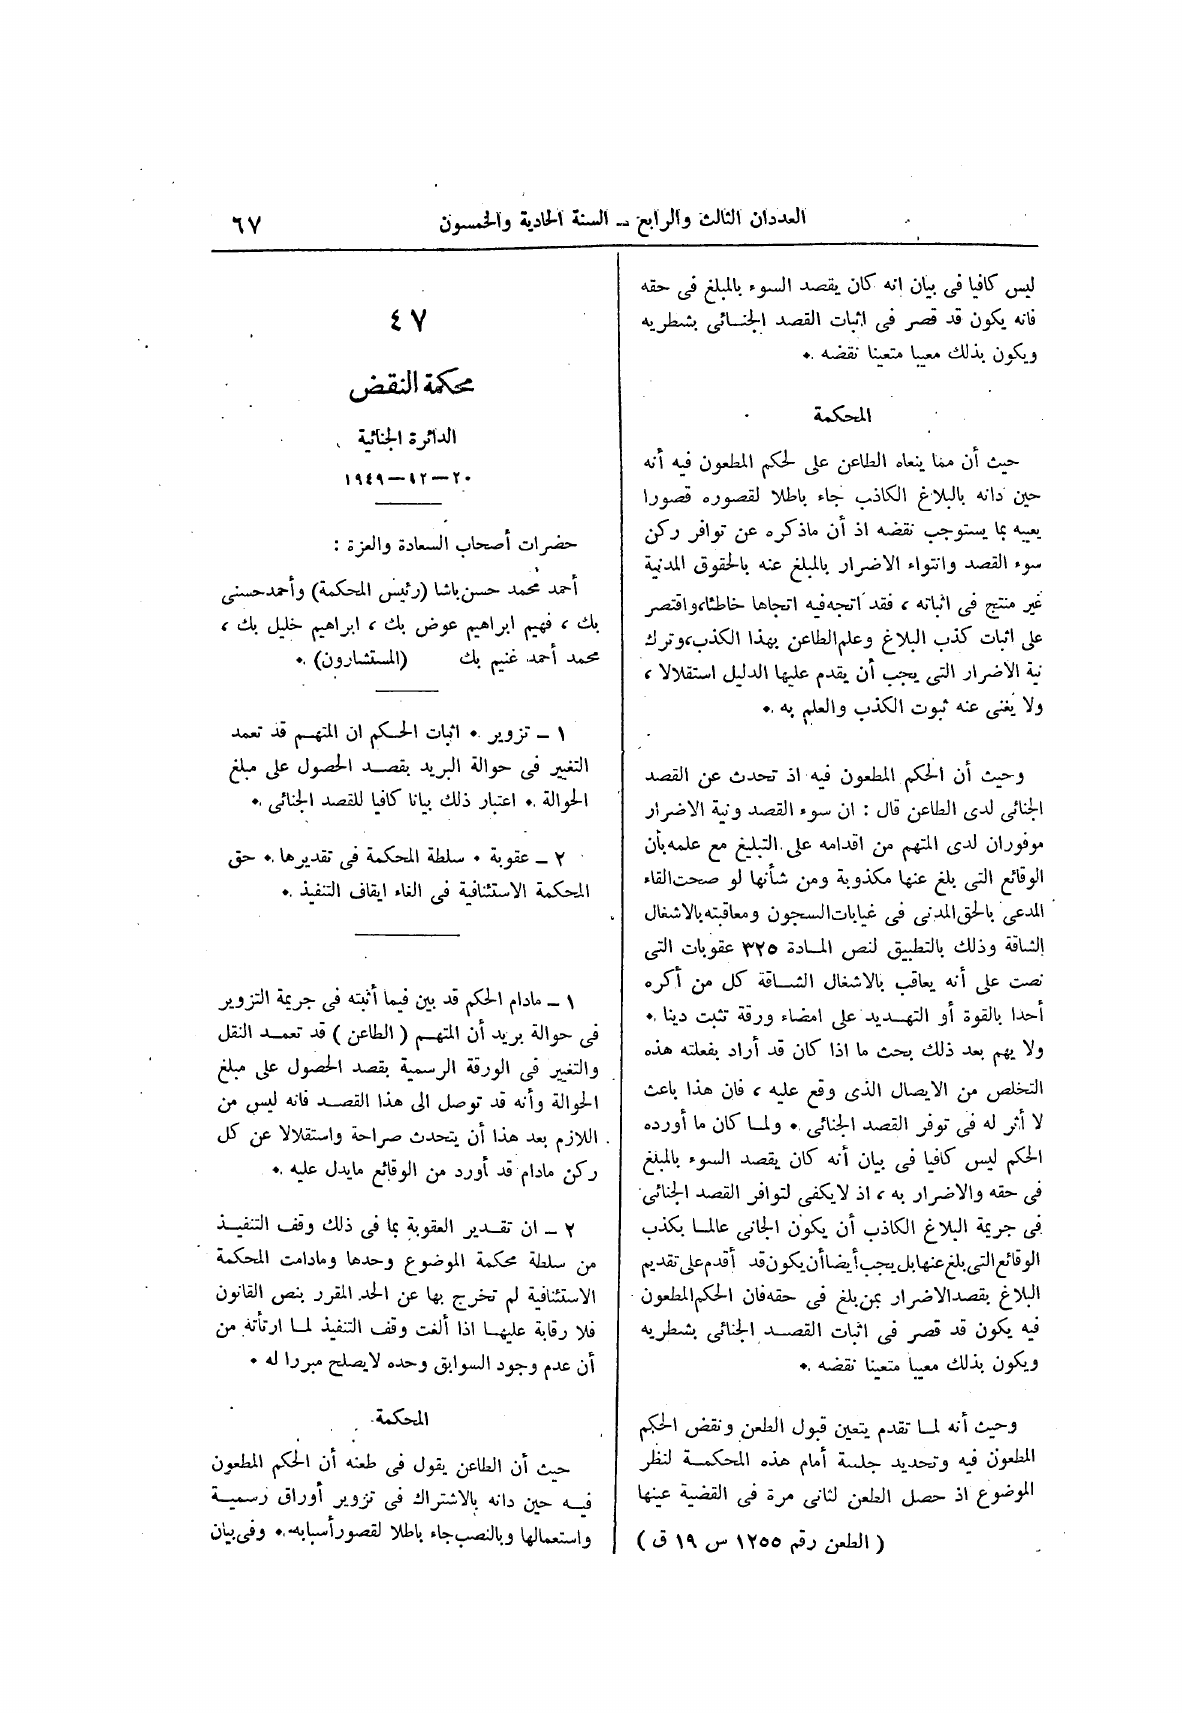 العددان الثالث والرابع – السنة الحادية والخمسون
٦٧
ليس كافيا فى بيان انه كان يقصد السوء بالمبلغ فى حقه
فانه يكون قد قصر فى اثبات القصد الجنائى بشطريه
ويكون بذلك معيبا متعينا نقضه .
المحكمة
حيث أن مما ينعاه الطاعن على لحكم المطعون فيه أنه
حين دانه بالبلاغ الكاذب جاء باطلا لقصوره قصورا
يعيبه بما يستوجب نقضه اذ أن ماذكره عن توافر ركن
سوء القصد وانتواء الاضرار بالمبلغ عنه بالحقوق المدنية
غير منتج فى اثباته ، فقد اتجه فيه اتجاها خاطئا، واقتصر
على اثبات كذب البلاغ وعلم الطاعن بهذا الكذب، وترك
نية الاضرار التى يجب أن يقدم عليها الدليل استقلالا ،
ولا يغنى عنه ثبوت الكذب والعلم به .
وحيث أن الحكم المطعون فيه اذ تحدث عن القصد
الجنائى لدى الطاعن قال : ان سوء القصد ونية الاضرار
موفوران لدى المتهم من اقدامه على التبليغ مع علمه بأن
الوقائع التى بلغ عنها مكذوبة ومن شأنها لو صحت القاء
المدعى بالحق المدنى فى غيابات السجون ومعاقبته بالاشغال
الشاقة وذلك بالتطبيق لنص المادة ٣٢٥ عقوبات التى
نصت على أنه يعاقب بالاشغال الشاقة كل من أكره
أحدا بالقوة أو التهديد على امضاء ورقة تثبت دينا .
ولا يهم بعد ذلك بحث ما اذا كان قد أراد بفعلته هذه
التخلص من الايصال الذى وقع عليه ، فان هذا باعث
لا أثر له فى توفر القصد الجنائى . ولما كان ما أورده
الحكم ليس كافيا فى بيان أنه كان يقصد السوء بالمبلغ
فى حقه والاضرار به ، اذ لا يكفى لتوافر القصد الجنائى
فى جريمة البلاغ الكاذب أن يكون الجانى عالما بكذب
الوقائع التى بلغ عنها بل يجب أيضا أن يكون قد أقدم على تقديم
البلاغ بقصد الاضرار بمن بلغ فى حقه فان الحكم المطعون
فيه يكون قد قصر فى اثبات القصد الجنائى بشطريه
ويكون بذلك معيبا متعينا نقضه .
وحيث أنه لما تقدم يتعين قبول الطعن ونقض الحكم
المطعون فيه وتحديد جلسة أمام هذه المحكمة لنظر
الموضوع اذ حصل الطعن لثانى مرة فى القضية عينها
( الطعن رقم ١٢٥٥ س ١٩ ق )
٤٧
محكمة النقض
الدائرة الجنائية
٢٠–١٢–١٩٤٩
حضرات أصحاب السعادة والعزة :
أحمد محمد حسن باشا (رئيس المحكمة) وأحمد حسنى
بك ، فهيم ابراهيم عوض بك ، ابراهيم خليل بك ،
محمد أحمد غنيم بك (المستشارون) .
١ – تزوير . اثبات الحكم ان المتهم قد تعمد
التغيير فى حوالة البريد بقصد الحصول على مبلغ
الحوالة . اعتبار ذلك بيانا كافيا للقصد الجنائى .
٢ – عقوبة . سلطة المحكمة فى تقديرها . حق
المحكمة الاستئنافية فى الغاء ايقاف التنفيذ .
١ – مادام الحكم قد بين فيما أثبته فى جريمة التزوير
فى حوالة بريد أن المتهم ( الطاعن ) قد تعمد النقل
والتغيير فى الورقة الرسمية بقصد الحصول على مبلغ
الحوالة وأنه قد توصل الى هذا القصد فانه ليس من
اللازم بعد هذا أن يتحدث صراحة واستقلالا عن كل
ركن مادام قد أورد من الوقائع مايدل عليه .
٢ – ان تقدير العقوبة بما فى ذلك وقف التنفيذ
من سلطة محكمة الموضوع وحدها ومادامت المحكمة
الاستئنافية لم تخرج بها عن الحد المقرر بنص القانون
فلا رقابة عليها اذا ألغت وقف التنفيذ لما ارتأته من
أن عدم وجود السوابق وحده لايصلح مبررا له .
المحكمة
حيث أن الطاعن يقول فى طعنه أن الحكم المطعون
فيه حين دانه بالاشتراك فى تزوير أوراق رسمية
واستعمالها وبالنصب جاء باطلا لقصور أسبابه . وفى بيان